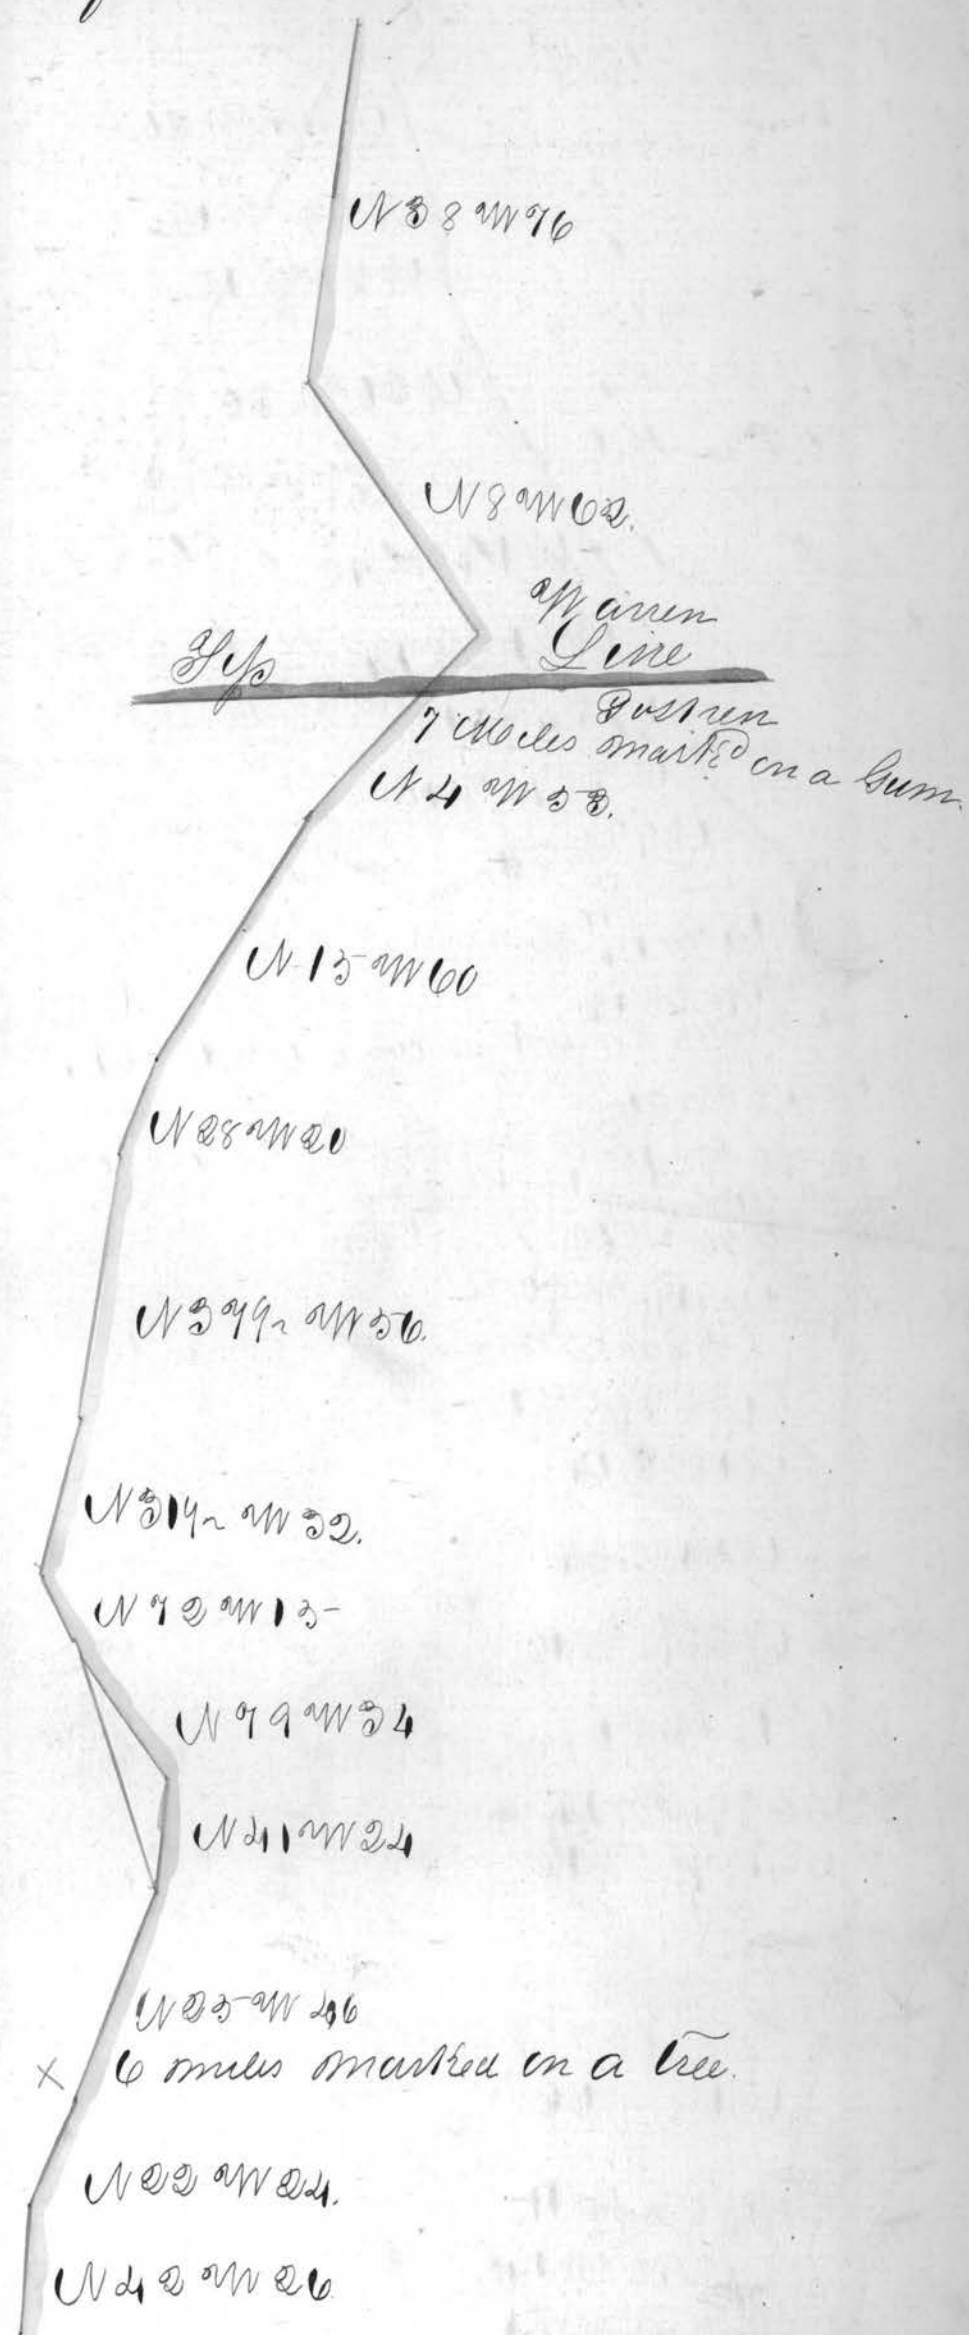 N 38 W 76
N 8 W 62.
Warren
Line
Tp
7 Miles marked on a Gum.
N 4 W 58.
N 15 W 60
N 28 W 20
N 37½ W 56.
N 31½ W 32.
N 72 W 15
N 79 W 34
N 41 W 24
N 25 W 46
X 6 miles marked on a tree.
N 22 W 24.
N 42 W 26